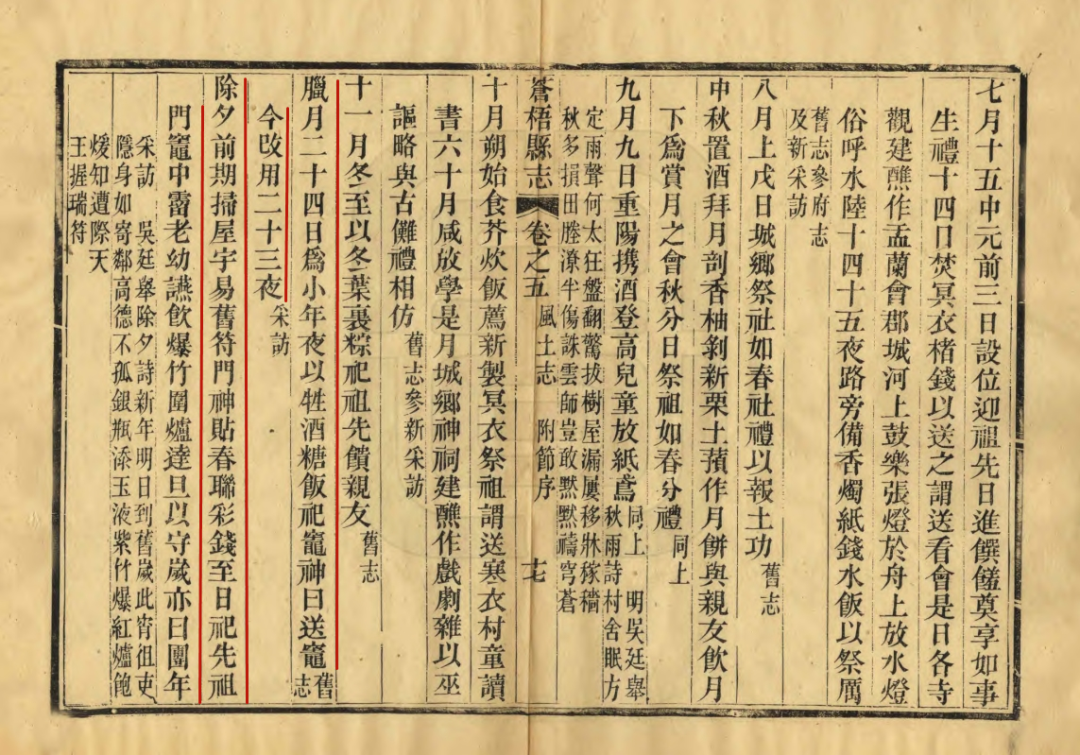 七月十五中元前三日設位迎祖先日進饌饈奠享如事
生禮十四日焚冥衣楮錢以送之謂送看會是日各寺
觀建醮作盂蘭會郡城河上鼓樂張燈於舟上放水燈
俗呼水陸十四十五夜路旁備香燭紙錢水飯以祭厲
舊志參府志
及新采訪
八月上戊日城鄉祭社如春社禮以報土功舊志
中秋置酒拜月剖香柚剝新栗土蕷作月餅與親友飲月
下為賞月之會秋分日祭祖如春分禮同上
九月九日重陽携酒登高兒童放紙鳶同上 明吳廷舉
秋雨詩村舍眠方
定雨聲何太狂盤翻驚拔樹屋漏屢移牀稼穡
秋多損田塍潦半傷詠雲師豈敢黙黙禱穹蒼
蒼梧縣志 卷之五 風土志 附節序 十七
十月朔始食芥炊飯薦新製冥衣祭祖謂送寒衣村童讀
書六十月咸放學是月城鄉神祠建醮作戲劇雜以巫
謳略與古儺禮相仿舊志參新采訪
十一月冬至以冬葉裹粽祀祖先饋親友舊志
臘月二十四日爲小年夜以牲酒糖飯祀竈神曰送竈舊志
今改用二十三夜采訪
除夕前期掃屋宇易舊符門神貼春聯彩錢至日祀先祖
門竈中霤老幼讌飲爆竹圍爐達旦以守歲亦曰團年
采訪 吳廷舉除夕詩新年明日到舊歲此宵徂吏
隱身如寄鄰高德不孤銀瓶添玉液紫竹爆紅爐飽
煖知遭際天
王握瑞符